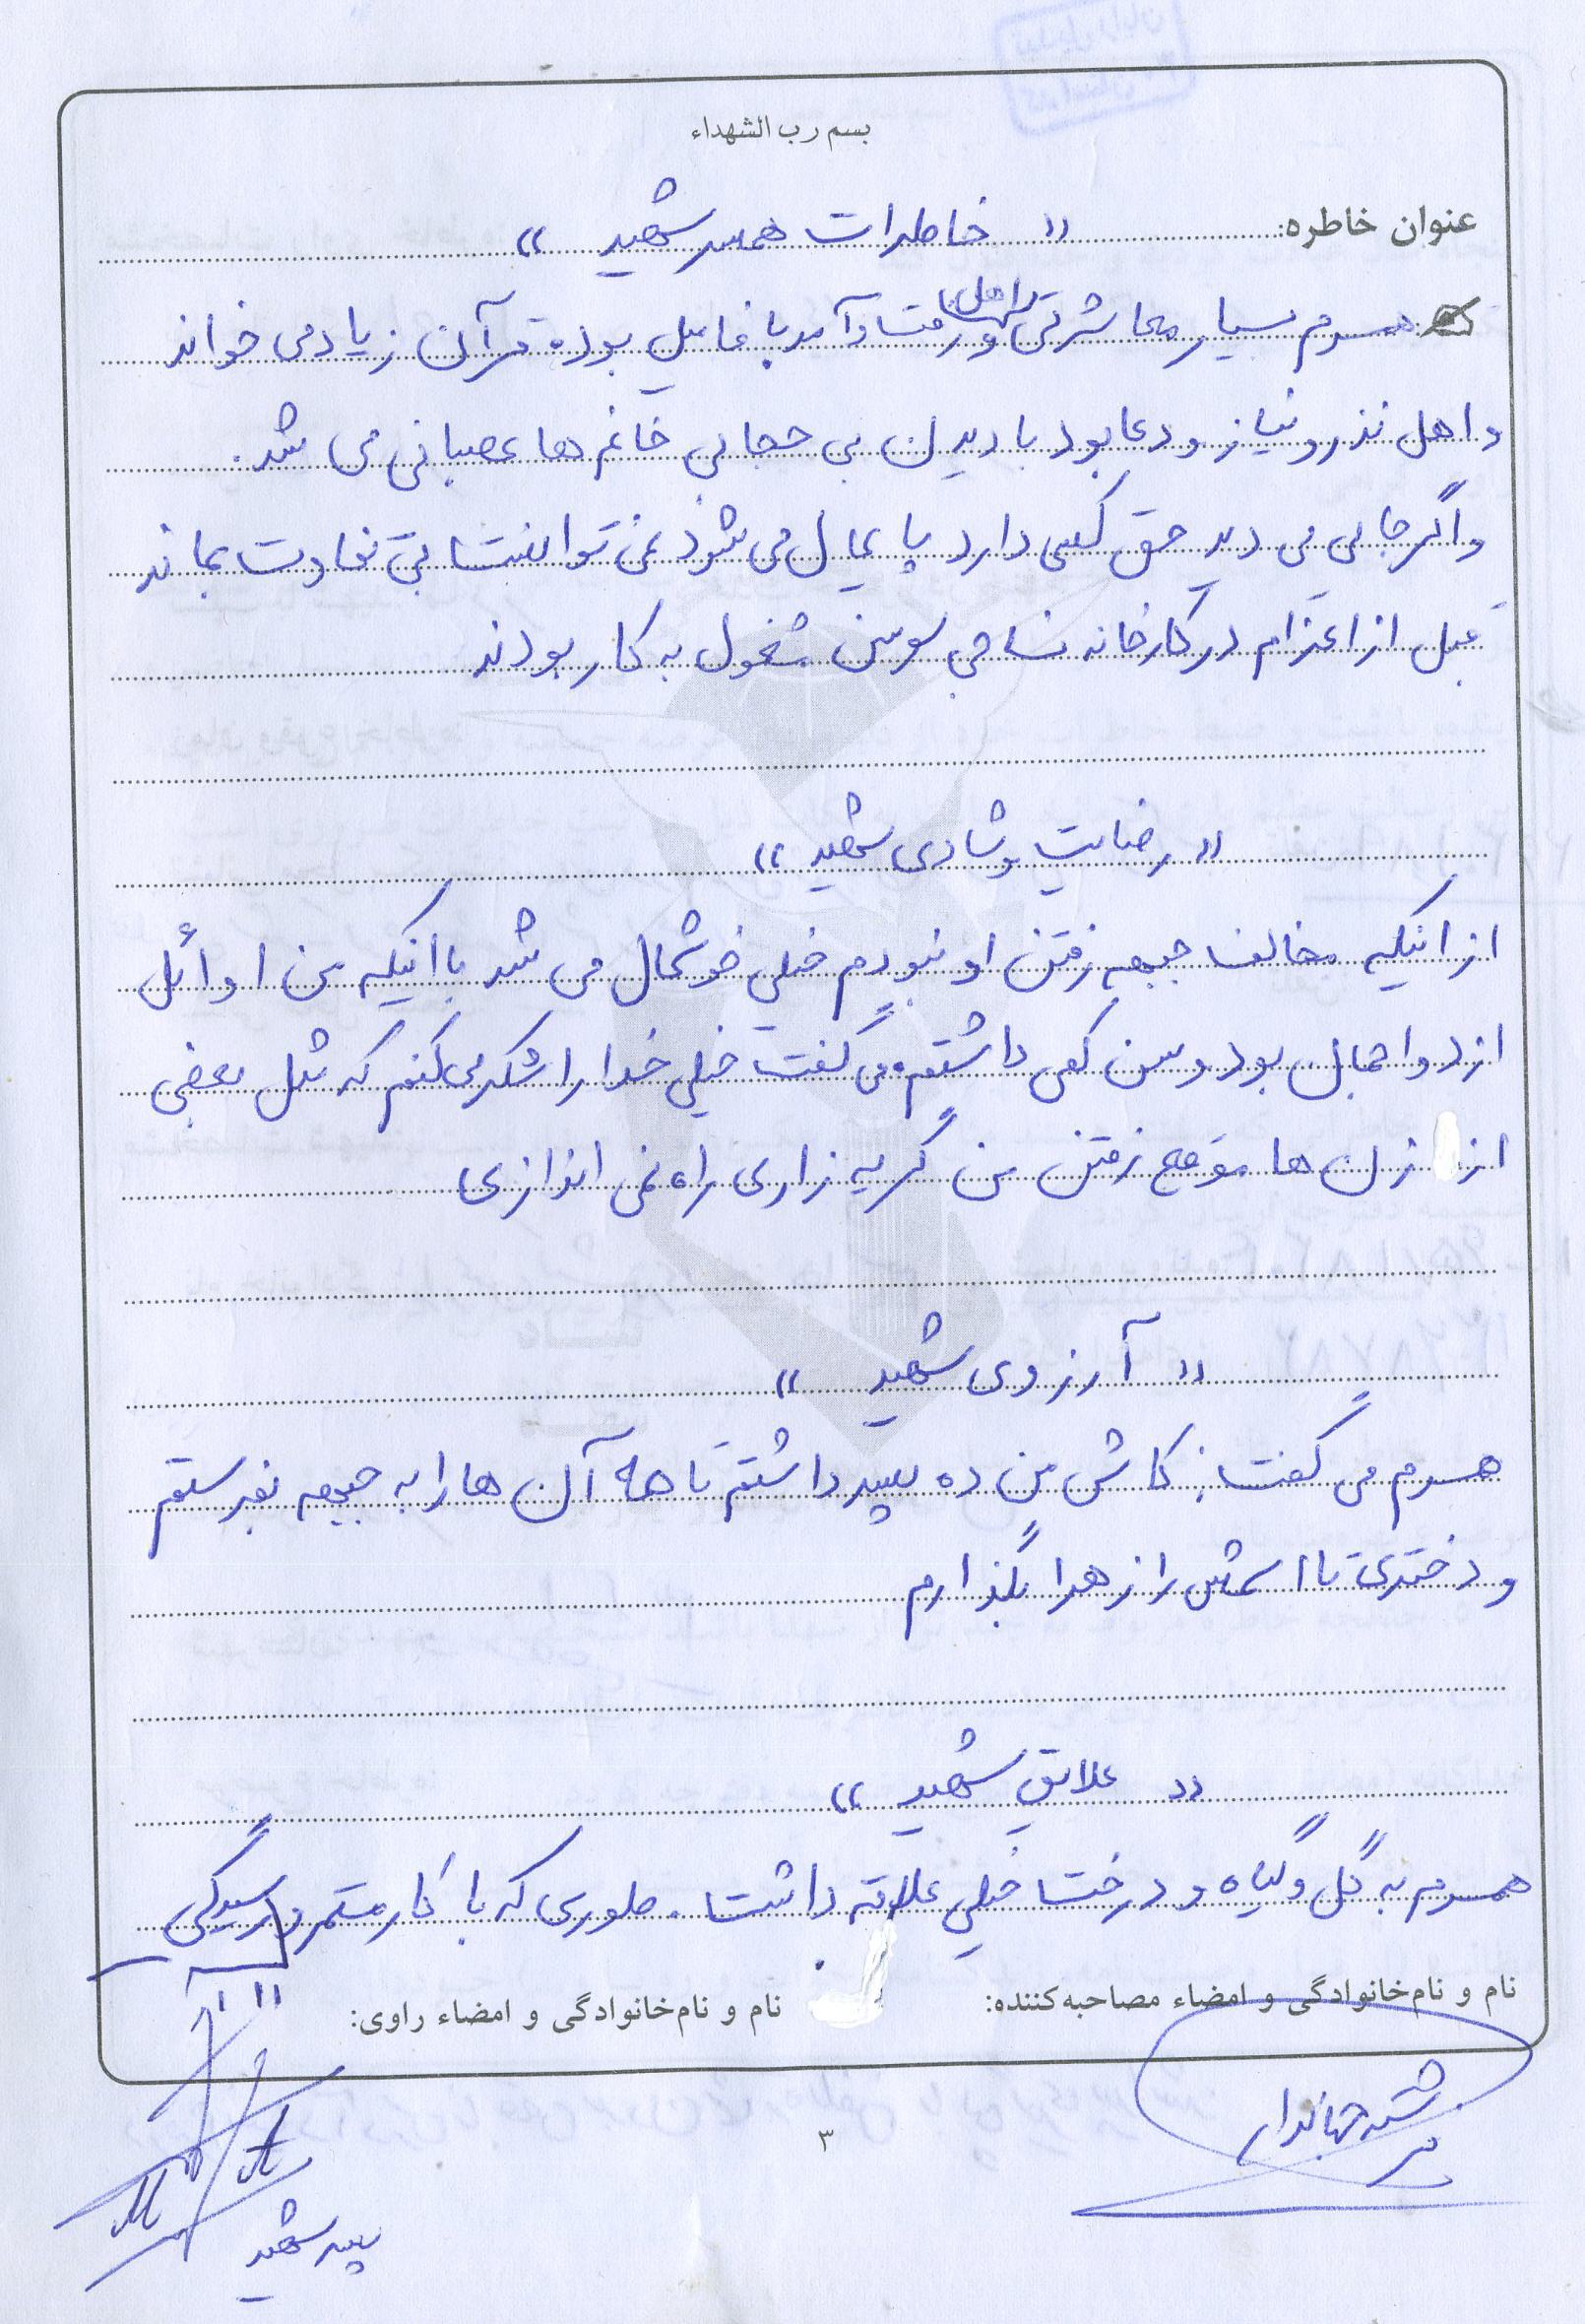 بسم رب الشهداء
عنوان خاطره: « خاطرات همسر شهید »
همسرم بسیار معاشرتی و اهل رفت و آمد با فامیل بود. قرآن زیاد می خواند
و اهل نذر و نیاز و دعا بود با دیدن بی حجابی خانم ها عصبانی می شد.
و اگر جایی می دید حق کسی دارد پایمال می شود نمی توانست بی تفاوت بماند
قبل از اعزام در کارخانه نساجی سوسن مشغول به کار بودند
« رضایت و شادی شهید »
از اینکه مخالف جبهه رفتن او نبودم خیلی خوشحال می شد با اینکه من اوائل
ازدواجمان بود و سن کمی داشتم. می گفت خیلی خدا را شکر می کنم که مثل بعضی
از زن ها موقع رفتن من گریه زاری راه نمی اندازی
« آرزوی شهید »
همسرم می گفت: کاش من ده پسر داشتم تا همه آن ها را به جبهه بفرستم
و دختری تا اسمش را زهرا بگذارم
« علایق شهید »
همسرم به گل و گیاه و درخت خیلی علاقه داشت. طوری که با کار مستمر و رسیدگی
نام و نام‌خانوادگی و امضاء مصاحبه‌کننده:
نام و نام‌خانوادگی و امضاء راوی:
۳
پسر شهید